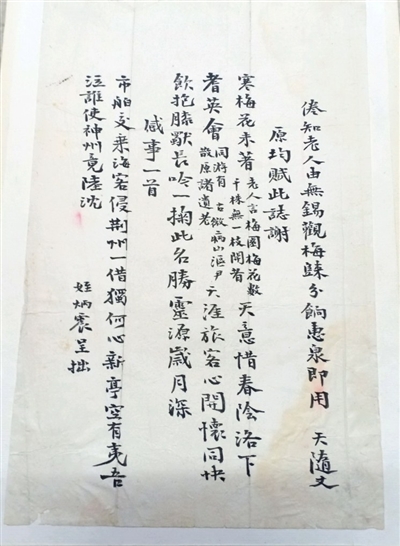 倦知老人由無錫觀梅歸分餉惠泉即用 天隨丈
原均賦此誌謝
寒梅花未著 老人言梅園梅花數千株無一枝開者 天意惜春陰洛下
耆英會 同游有古微病山漚尹散原諸遺老 天涯旅客心開懷同快
飲抱膝歗長吟一掬此名勝靈源歲月深
感事一首
市舶交乘海客侵荆州一借獨何心新亭空有夷吾
泣誰使神州竟陸沈
姪炳震呈拙